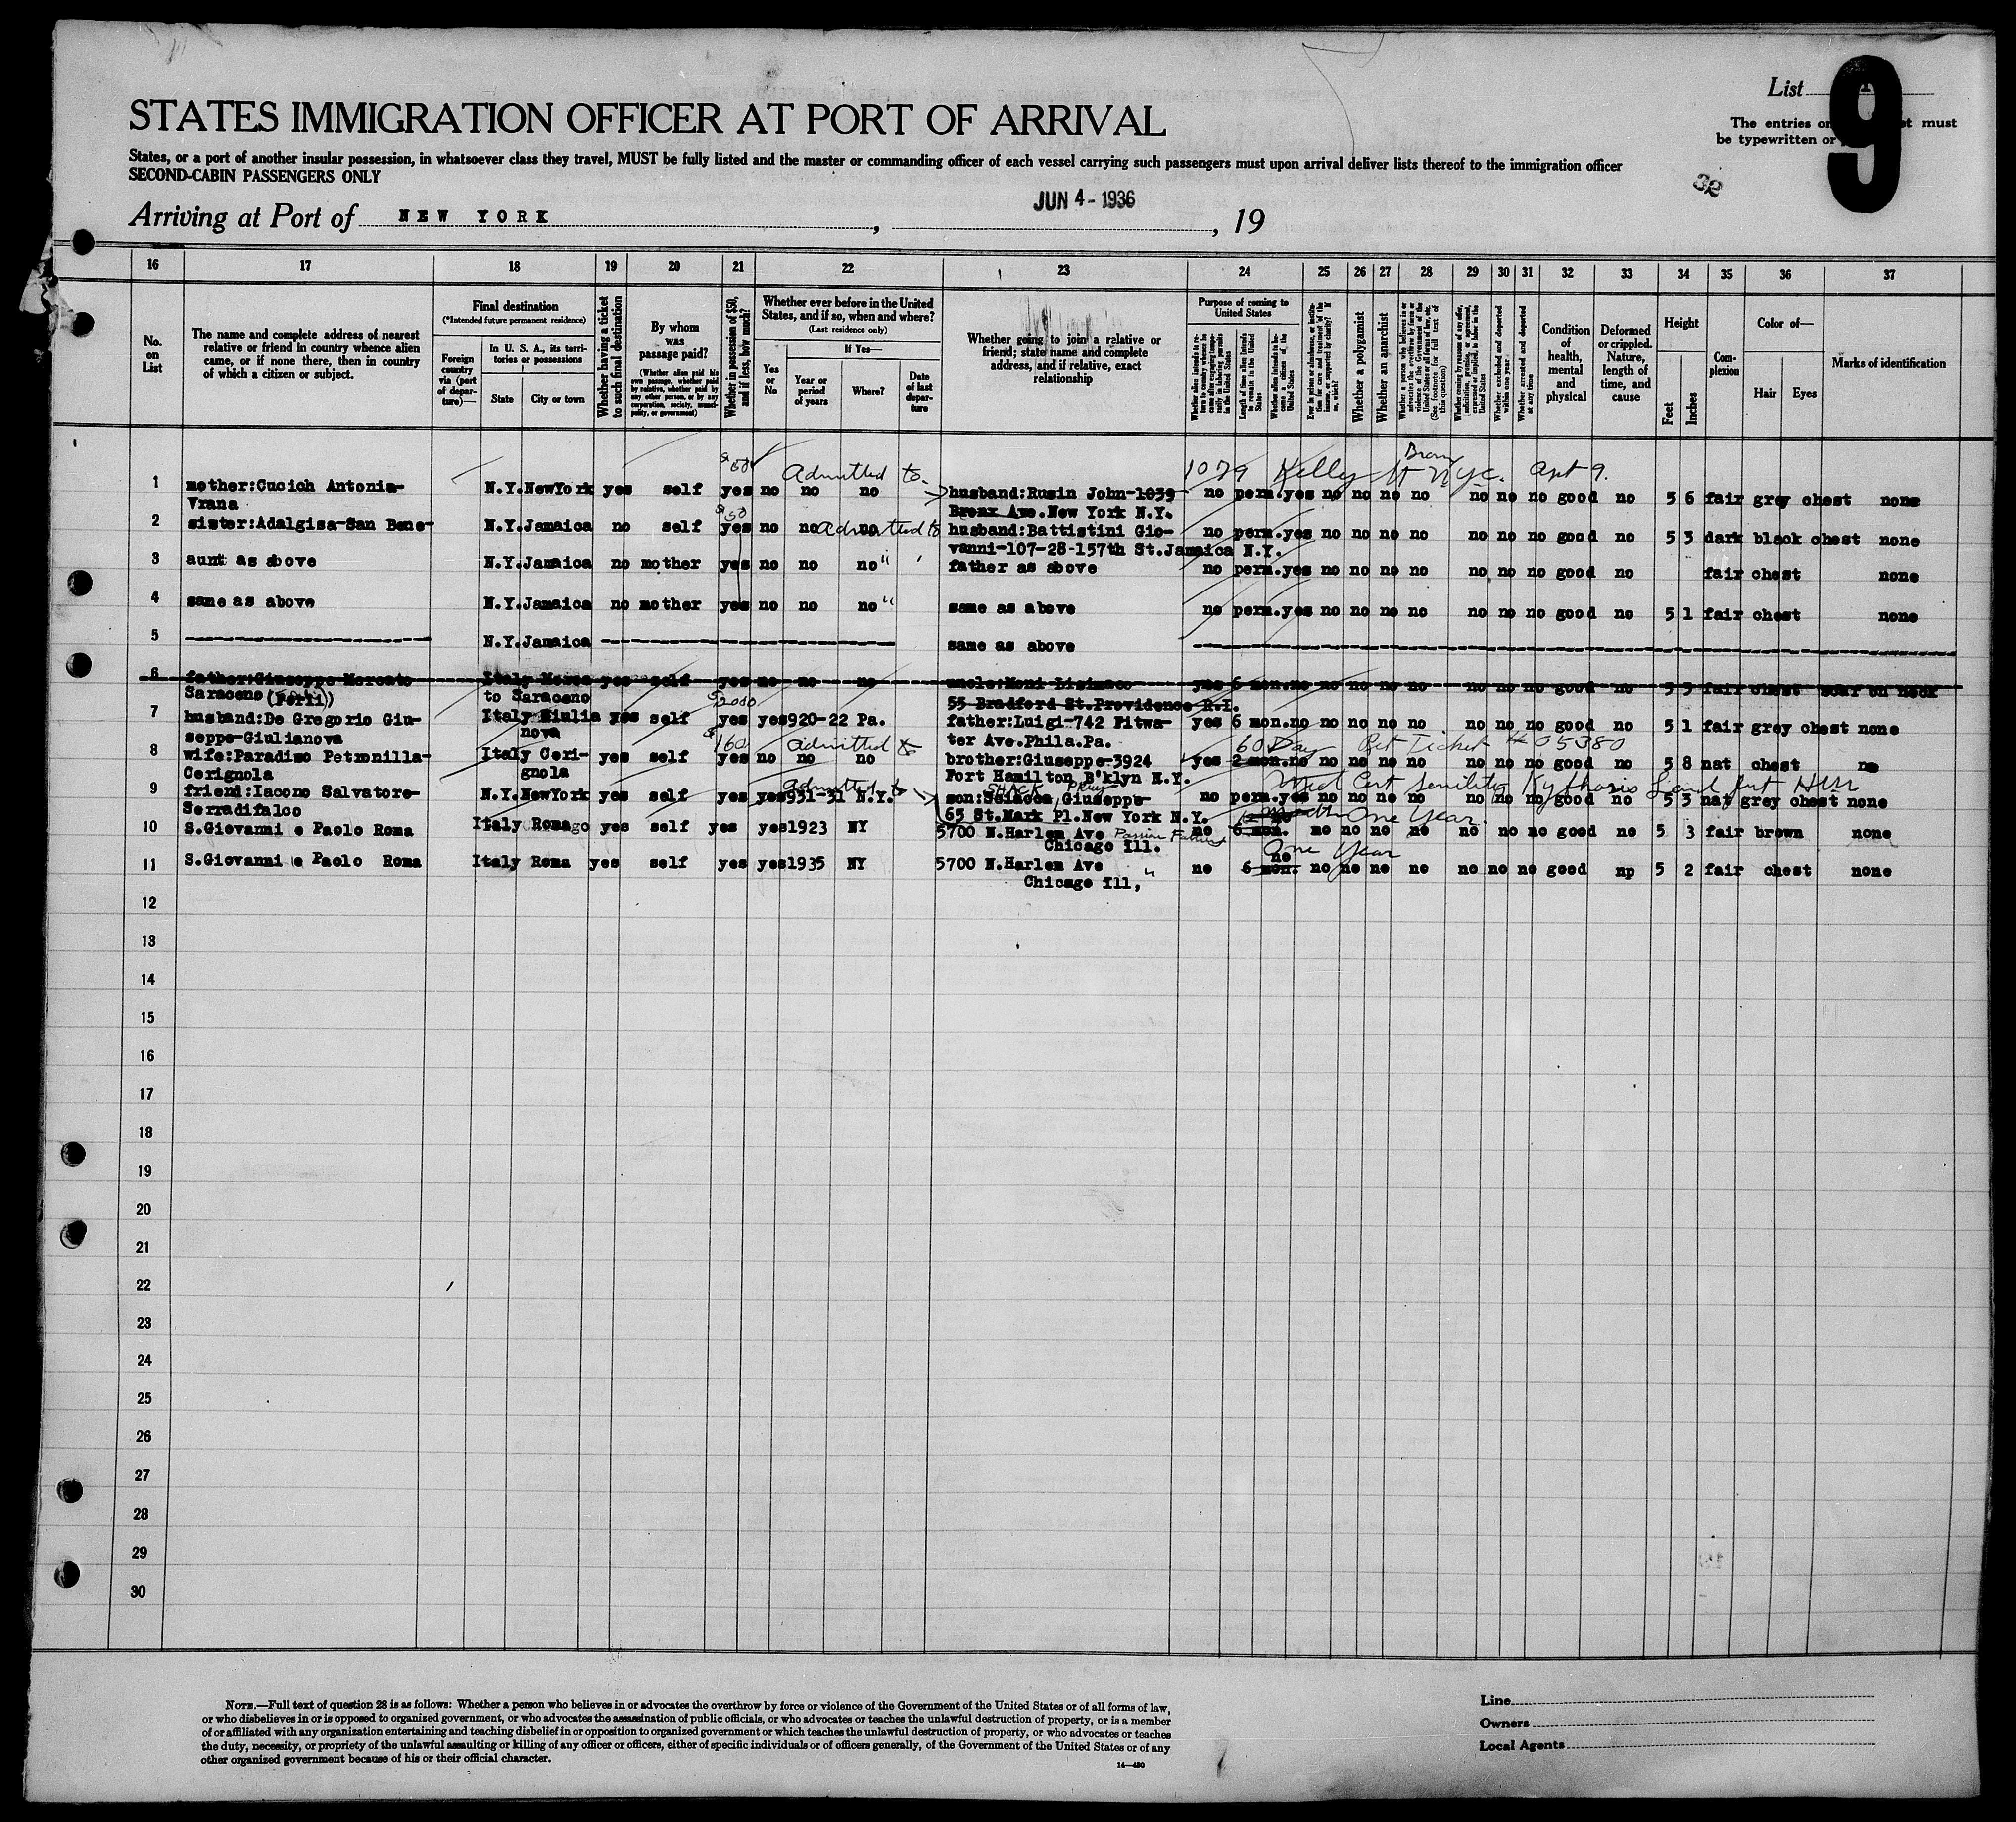 List
9
The entries on
et must
be typewritten or
STATES IMMIGRATION OFFICER AT PORT OF ARRIVAL
States, or a port of another insular possession, in whatsoever class they travel, MUST be fully listed and the master or commanding officer of each vessel carrying such passengers must upon arrival deliver lists thereof to the immigration officer
SECOND-CABIN PASSENGERS ONLY
32
Arriving at Port of NEW YORK , JUN 4 - 1936 , 19
16 17 18 19 20 21 22 23 24 25 26 27 28 29 30 31 32 33 34 35 36 37
No. on List
The name and complete address of nearest relative or friend in country whence alien came, or if none there, then in country of which a citizen or subject.
Final destination
(*Intended future permanent residence)
Foreign country via (port of departure)—
In U. S. A., its territories or possessions
State
City or town
Whether having a ticket to such final destination
By whom was passage paid?
(Whether alien paid his own passage, whether paid by relative, whether paid by any other person, or by any corporation, society, municipality, or government)
Whether in possession of $50, and if less, how much?
Whether ever before in the United States, and if so, when and where?
(Last residence only)
Yes or No
If Yes—
Year or period of years
Where?
Date of last departure
Whether going to join a relative or friend; state name and complete address, and if relative, exact relationship
Purpose of coming to United States
Length of time alien intends to remain in the United States
Whether alien intends to become a citizen of the United States
Whether a polygamist
Whether an anarchist
(See footnote for full text of this question)
Whether excluded and deported within one year
Whether arrested and deported at any time
Condition of health, mental and physical
Deformed or crippled. Nature, length of time, and cause
Height
Feet
Inches
Complexion
Color of—
Hair
Eyes
Marks of identification
$50 Admitted to 1079 Kelly St Bronx N.Y.C. Apt 9.
1 mother:Cucich Antonia- N.Y. NewYork yes self yes no no no husband:Rusin John-1039 no perm. yes no no no no no no no good no 5 6 fair grey chest none
Vrana Bronx Ave.New York N.Y.
$50
2 sister:Adalgisa-San Bene- N.Y. Jamaica no self yes no no no admitted to husband:Battistini Gio- no perm. yes no no no no no no no good no 5 3 dark black chest none
vanni-107-28-157th St.Jamaica N.Y.
3 aunt as above N.Y. Jamaica no mother yes no no no " father as above no perm. yes no no no no no no no good no fair chest none
4 same as above N.Y. Jamaica no mother yes no no no " same as above no perm. yes no no no no no no no good no 5 1 fair chest none
5 N.Y. Jamaica same as above
6 father:Giuseppe Mercato Italy Merca yes self yes no no no uncle:Moni Lisimaco yes 6 mon. no no no no no no no no good no 5 5 fair chest scar on neck
Saraceno (Forli) to Saraceno $2000 55 Bradford St.Providence R.I.
7 husband:De Gregorio Giu- Italy Giulia yes self yes yes 920-22 Pa. father:Luigi-742 Fitwa- yes 6 mon. no no no no no no no no good no 5 1 fair grey chest none
seppe-Giulianova nova ter Ave.Phila.Pa.
$160 admitted to 60 Day Ret Ticket # 05380
8 wife:Paradiso Petronilla- Italy Ceri- yes self yes no no no brother:Giuseppe-3924 yes 2 mon. no no no no no no no no good no 5 8 nat chest no
Cerignola gnola Fort Hamilton B'klyn N.Y.
admitted to Med Cert Senility Kyphosis
9 friend:Iacono Salvatore- N.Y. NewYork yes self yes yes 931-31 N.Y. son:Sciacca Giuseppe- no perm. yes no no no no no no no good no 5 3 nat grey chest none
Serradifalco 65 St.Mark Pl.New York N.Y. One Year.
10 S.Giovanni e Paolo Roma Italy Roma yes self yes yes 1923 NY 5700 N.Harlem Ave no 6 mon. no no no no no no no good no 5 3 fair brown none
Chicago Ill.
One Year
11 S.Giovanni e Paolo Roma Italy Roma yes self yes yes 1935 NY 5700 N.Harlem Ave " no 6 mon. no no no no no no no no good np 5 2 fair chest none
Chicago Ill,
12
13
14
15
16
17
18
19
20
21
22
23
24
25
26
27
28
29
30
NOTE.—Full text of question 28 is as follows: Whether a person who believes in or advocates the overthrow by force or violence of the Government of the United States or of all forms of law,
or who disbelieves in or is opposed to organized government, or who advocates the assassination of public officials, or who advocates or teaches the unlawful destruction of property, or is a member
of or affiliated with any organization entertaining and teaching disbelief in or opposition to organized government or which teaches the unlawful destruction of property, or who advocates or teaches
the duty, necessity, or propriety of the unlawful assaulting or killing of any officer or officers, either of specific individuals or of officers generally, of the Government of the United States or of any
other organized government because of his or their official character.
14—430
Line
Owners
Local Agents